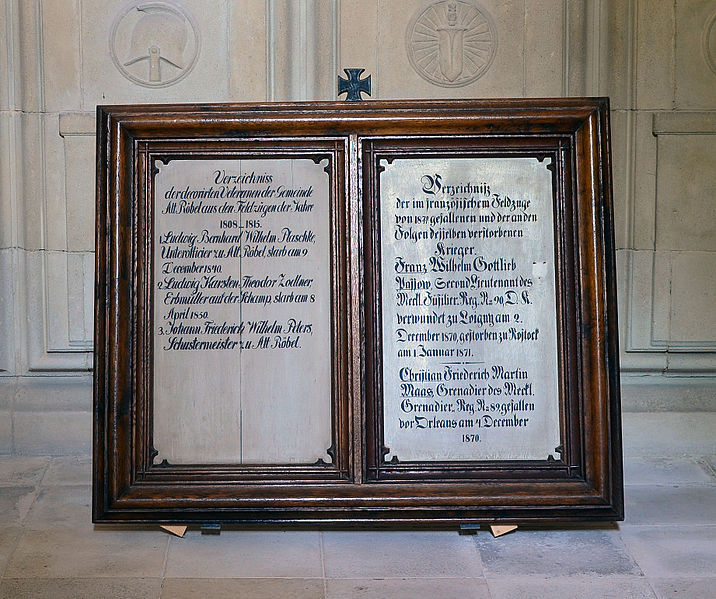 Verzeichniss
der decorirten Veteranen der Gemeinde
Alt Röbel aus den Feldzügen der Jahre
1808_1815.
1. Ludwig Bernhard Wilhelm Plaschke,
Unterofficier zu Alt Röbel, starb am 9
December 1840.
2. Ludwig Karsten Theodor Zoellner,
Erbmüller auf der Schamp, starb am 8
April 1850.
3. Johann Friederich Wilhelm Peters,
Schustermeister zu Alt Röbel.
Verzeichniß
der im französischem Feldzuge
von 1870 gefallenen und der an den
Folgen desselben verstorbenen
Krieger.
Franz Wilhelm Gottlieb
Passow, Second Lieutenant des
Meckl. Füsilier. Reg. No 90. D. K.
verwundet zu Loigny am 2.
December 1870, gestorben zu Rostock
am 1 Januar 1871.
Christian Friederich Martin
Maas, Grenadier des Meckl.
Grenadier. Reg. No 89, gefallen
vor Orleans am 4 December
1870.